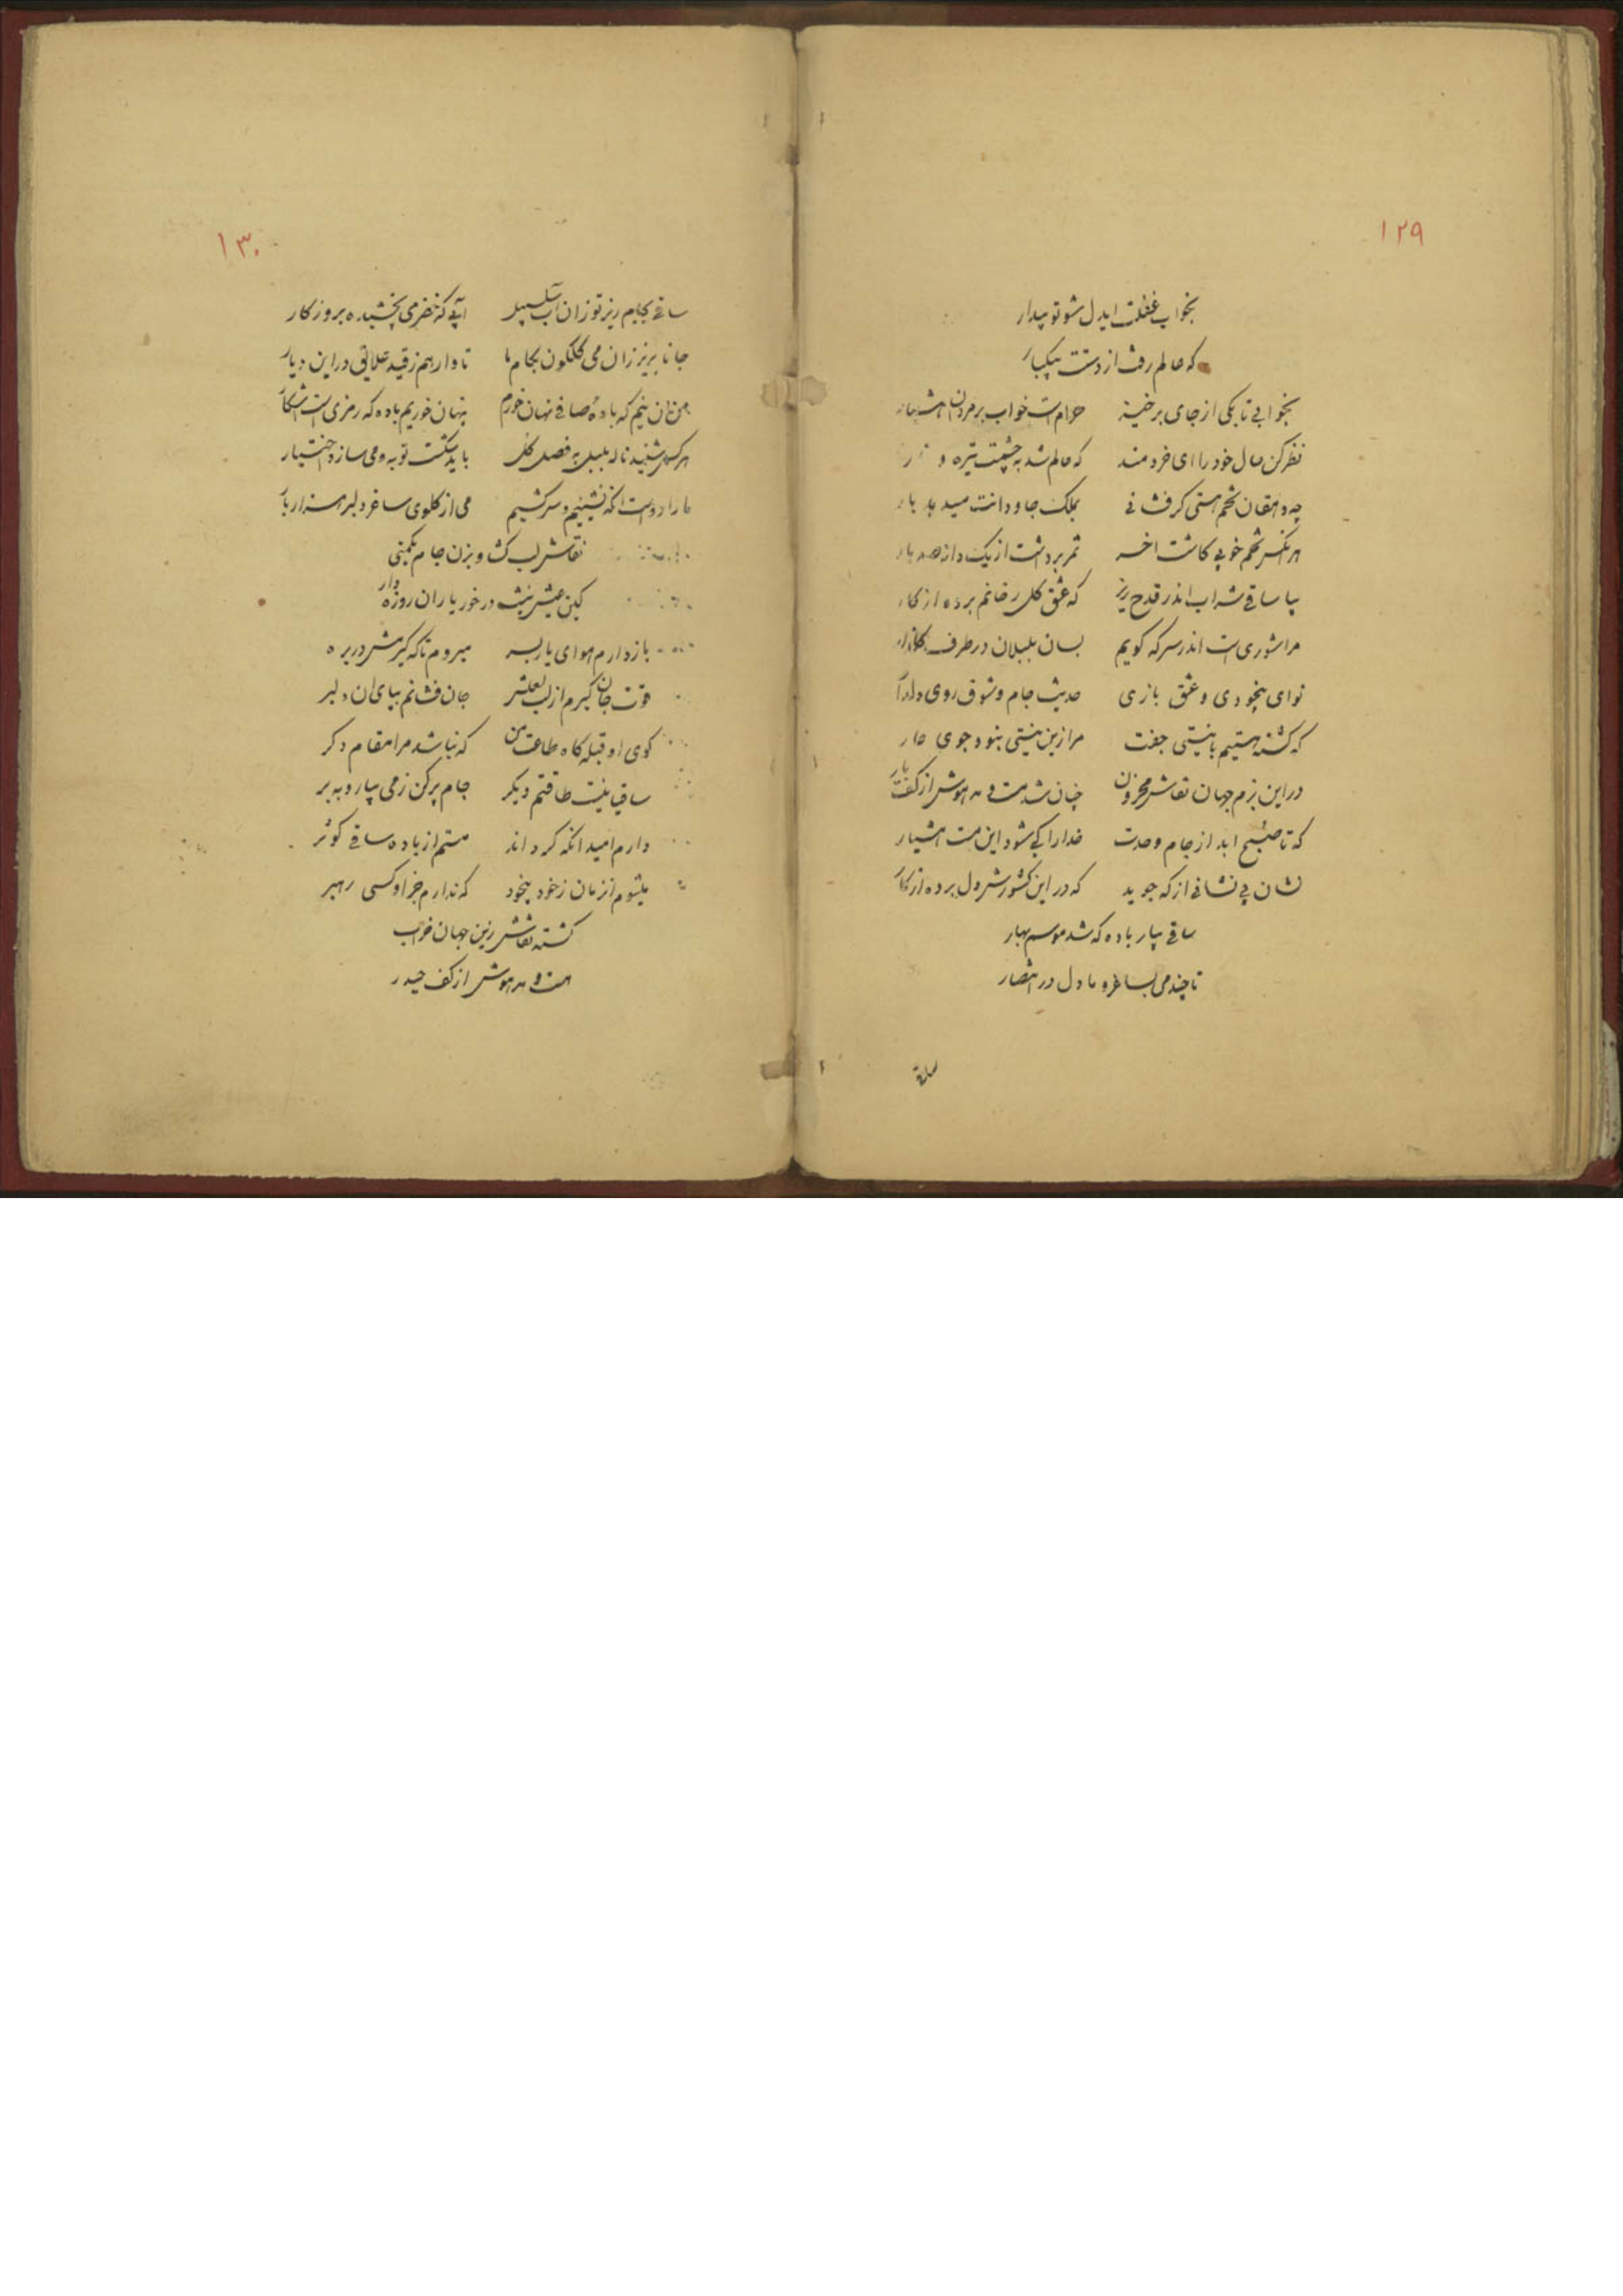 ۱۲۹
بخواب غفلت ایدل شو تو بیدار
که عالم رفت از دستت بیکبار
بخوابی تا بکی از جای برخیز حرامست خواب بر مردان هشیار
نظر کن حال خود را ای خردمند که عالم شد به چشمت تیره و
چه دهقان تخم هستی کرفشانی بملک جاودانت میدهد بار
هر آنکس تخم خوبی کاشت اخر ثمر برداشت از یک دانه صد بار
بیا ساقی شراب اندر قدح ریز که عشق کل رخانم برده از کار
مرا شوری است اندر سر که کویم بسان بلبلان در طرف کلزار
نوای بیخودی و عشق بازی حدیث جام و شوق روی دلدار
که کشته هستیم با نیستی جفت مرا زین نیستی نبود جوی عار
در این بزم جهان نقاش محزون چنان شد مست و مدهوش از کف یار
که تا صبح ابد از جام وحدت خدا را کی شود این مست هشیار
نشان بی نشانی از که جوید که در این کشورش دل برده از کار
ساقی بیار باده که شد موسم بهار
تا چند می بساغر و ما دل در انتظار
ساقی
۱۳۰
ساقی بجام ریز تو زان آب سلسبیل آبی که خضر می بخشیده بروزکار
جانا بریز زان می کلکون بکام ما تا وارهیم ز قید علایق در این دیار
من ان نیم که باده صافی نهان خورم پنهان خوریم باده که رمزی است اشکار
هر کس شنید ناله بلبل به فصل کل باید شکست توبه و می سازد اختیار
ما را دو دست انکه نشینیم و سر کشیم می از کلوی ساغر و دلبر هزار بار
نقاش لب کش و بزن جام یکمنی
کین عیش نیست در خور یاران روزه دار
باز دارم هوای یار بسر میروم تا که کیرمش در بر
قوت جان کیرم از لب لعلش جان فشانم بپای ان دلبر
کوی او قبله کاه طاعت من که نباشد مرا مقام دکر
ساقیا نیست طاقتم دیکر جام پر کن ز می بیار و ببر
دارم امید انکه کرداند مستم از باده ساقی کوثر
میشوم انزمان ز خود بیخود که ندارم جز او کسی رهبر
کشته نقاش زین جهان خراب
مست و مدهوش از کف حیدر